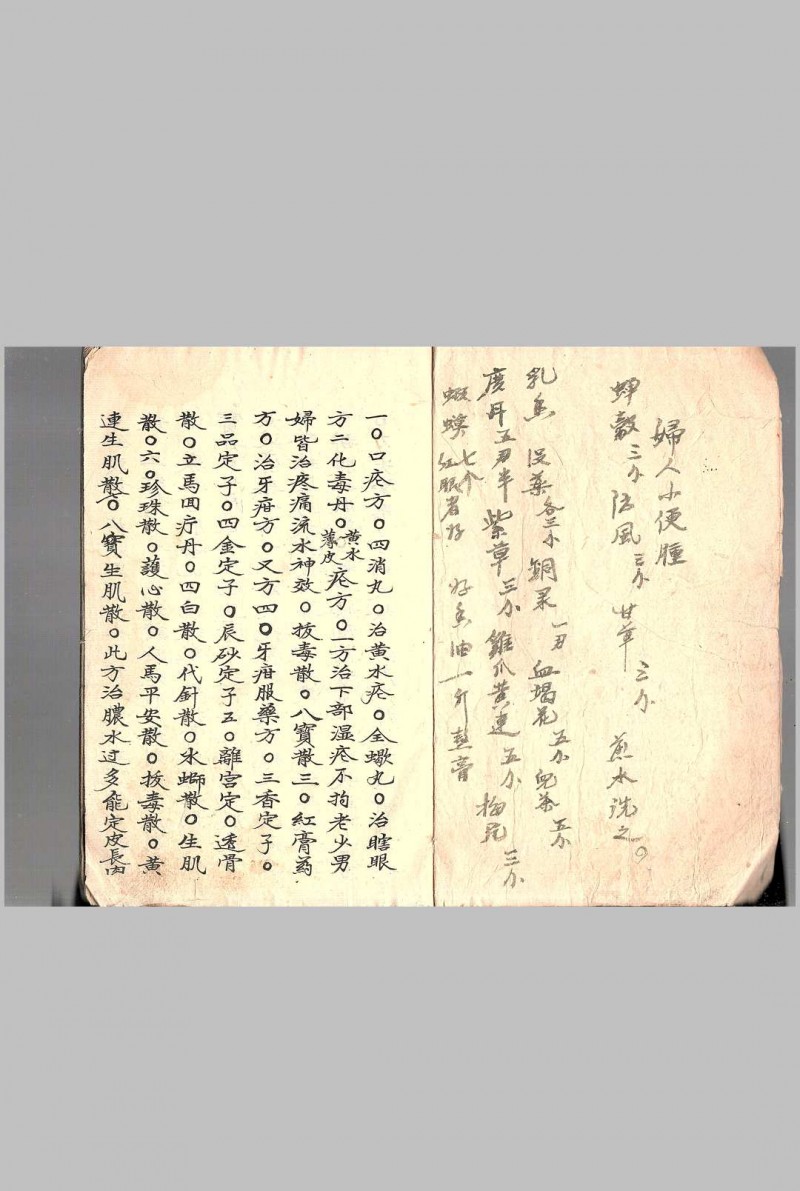 婦人小便腫
蟬殼三小防風三小甘草三小 煎水洗之。
乳香 沒藥各三小銅 一刃血竭花五小兒茶五小
廣丹五刃半 紫草三小雞爪黃連五小梅 三小
蝦蟆七个紅眼者好 好香油一斤熬膏
一〇口疮方〇四消丸〇治黄水疮〇全蠍丸〇治瞎眼
方二化毒丹〇黄水薄皮疮方〇一方治下部湿疮不拘老少男
婦皆治疼痛流水神效〇拔毒散〇八寶散三〇紅膏葯
方〇治牙疳方〇又方四〇牙疳服藥方〇三香定子〇
三品定子〇四金定子〇辰砂定子五〇離宮定〇透骨
散〇立馬回疔丹〇四白散〇代針散〇氷螄散〇生肌
散〇六〇珍珠散〇護心散〇人馬平安散〇拔毒散〇黄
連生肌散〇八寶生肌散〇此方治膿水过多能定皮長肉